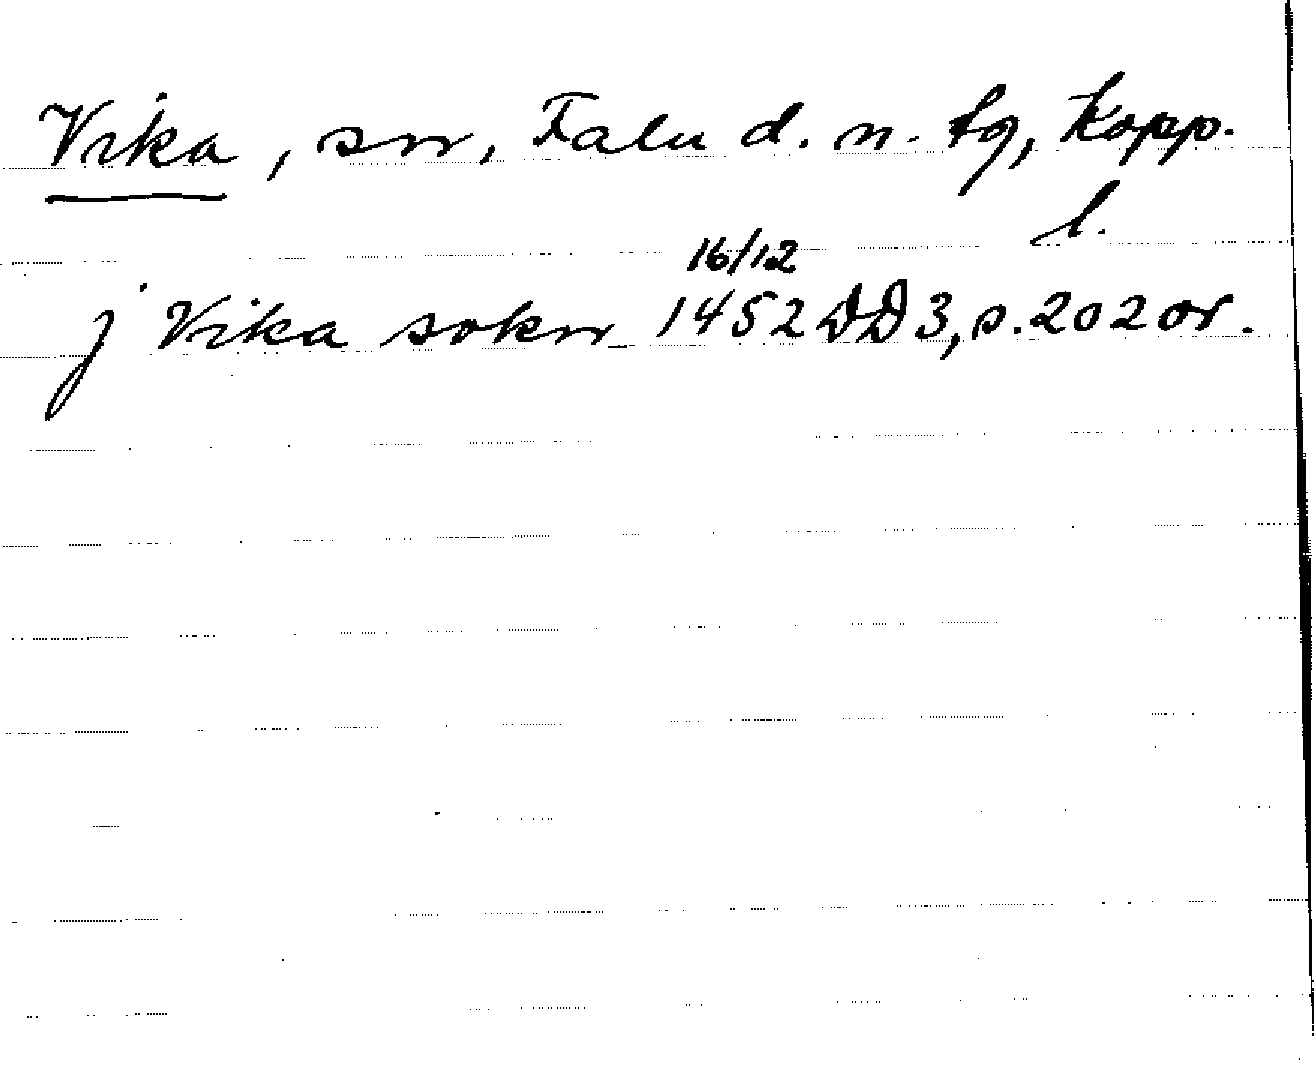 Vika, sn, Falu d. n. tg, Kopp.
l.
16/12
j Vika sokn 1452 DD 3, s. 202 or.